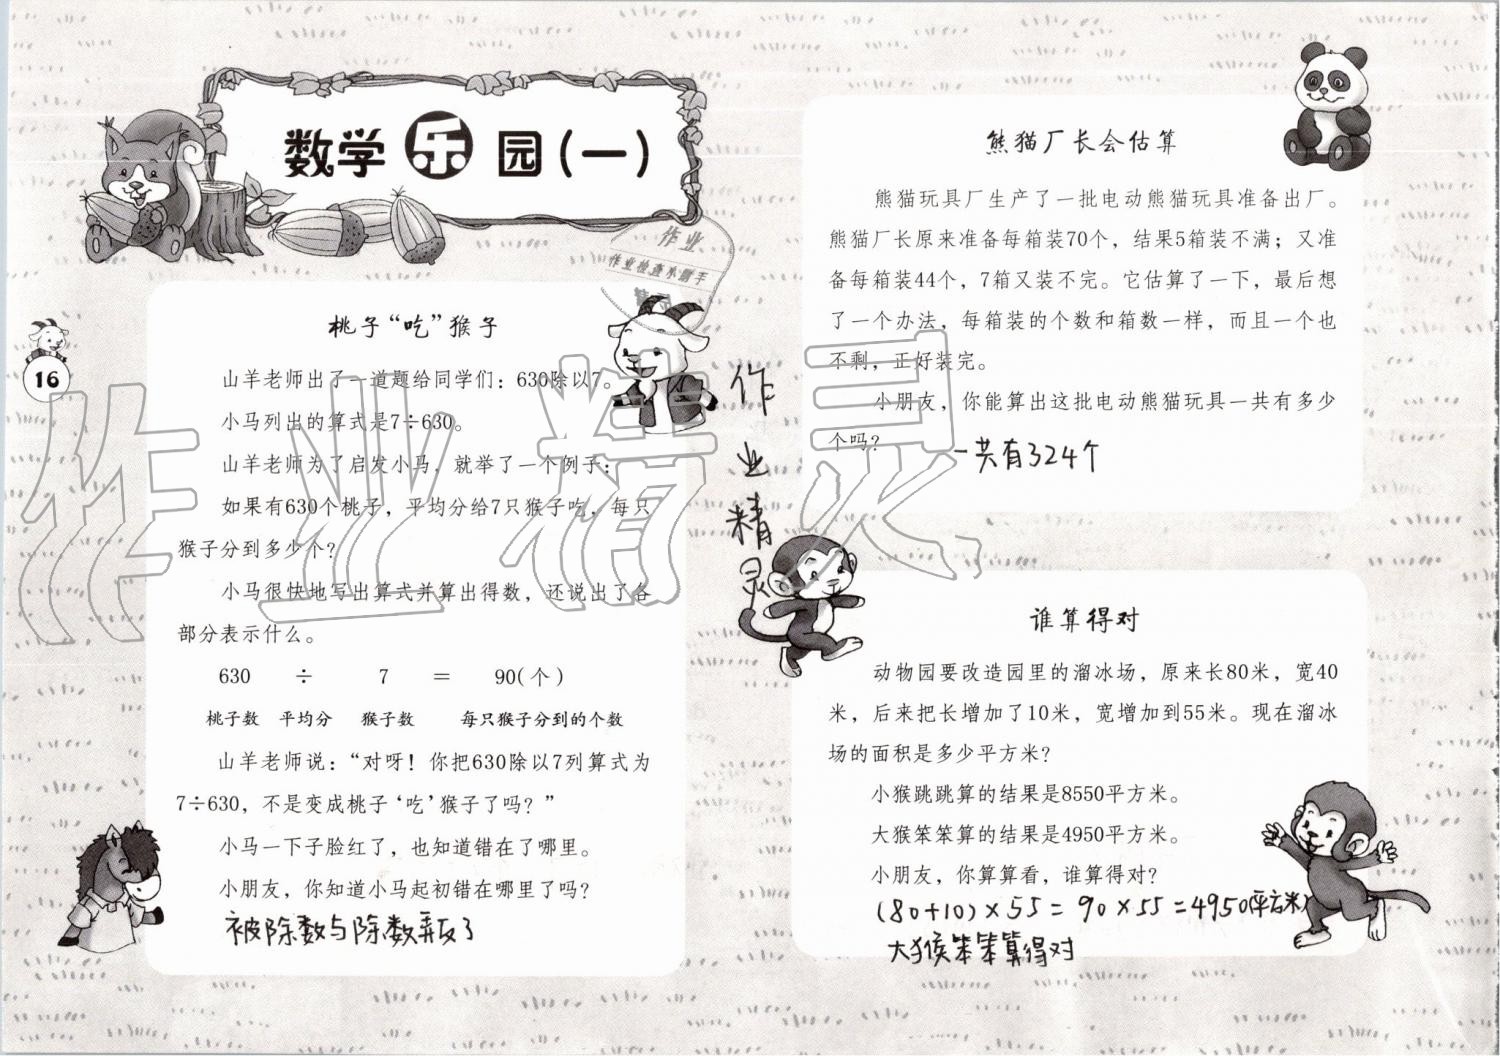 数学乐园(一)
桃子“吃”猴子
山羊老师出了一道题给同学们：630除以7。
小马列出的算式是7÷630。
山羊老师为了启发小马，就举了一个例子：
如果有630个桃子，平均分给7只猴子吃，每只
猴子分到多少个？
小马很快地写出算式并算出得数，还说出了各
部分表示什么。
630 ÷ 7 = 90(个)
桃子数 平均分 猴子数 每只猴子分到的个数
山羊老师说：“对呀！你把630除以7列算式为
7÷630，不是变成桃子‘吃’猴子了吗？”
小马一下子脸红了，也知道错在了哪里。
小朋友，你知道小马起初错在哪里了吗？
被除数与除数弄反了
16
作业
作业检查小助手
作业精灵
作业精灵
熊猫厂长会估算
熊猫玩具厂生产了一批电动熊猫玩具准备出厂。
熊猫厂长原来准备每箱装70个，结果5箱装不满；又准
备每箱装44个，7箱又装不完。它估算了一下，最后想
了一个办法，每箱装的个数和箱数一样，而且一个也
不剩，正好装完。
小朋友，你能算出这批电动熊猫玩具一共有多少
个吗？
一共有324个
谁算得对
动物园要改造园里的溜冰场，原来长80米，宽40
米，后来把长增加了10米，宽增加到55米。现在溜冰
场的面积是多少平方米？
小猴跳跳算的结果是8550平方米。
大猴笨笨算的结果是4950平方米。
小朋友，你算算看，谁算得对？
(80+10)×55=90×55=4950(平方米)
大猴笨笨算得对